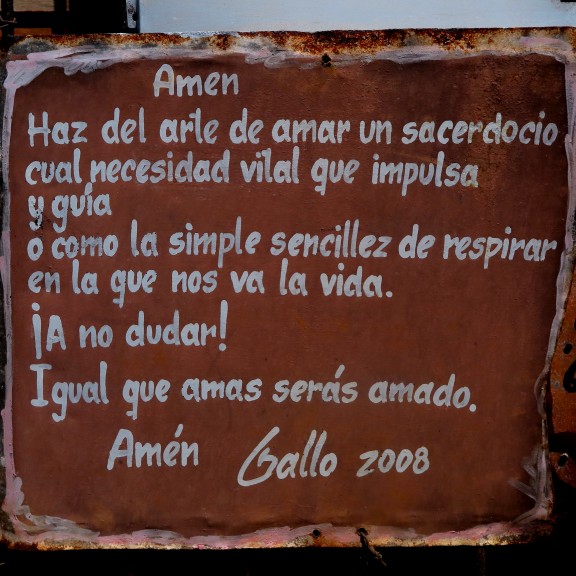 Amen
Haz del arte de amar un sacerdocio
cual necesidad vital que impulsa
y guía
o como la simple sencillez de respirar
en la que nos va la vida.
¡A no dudar!
Igual que amas serás amado.
Amén Gallo 2008